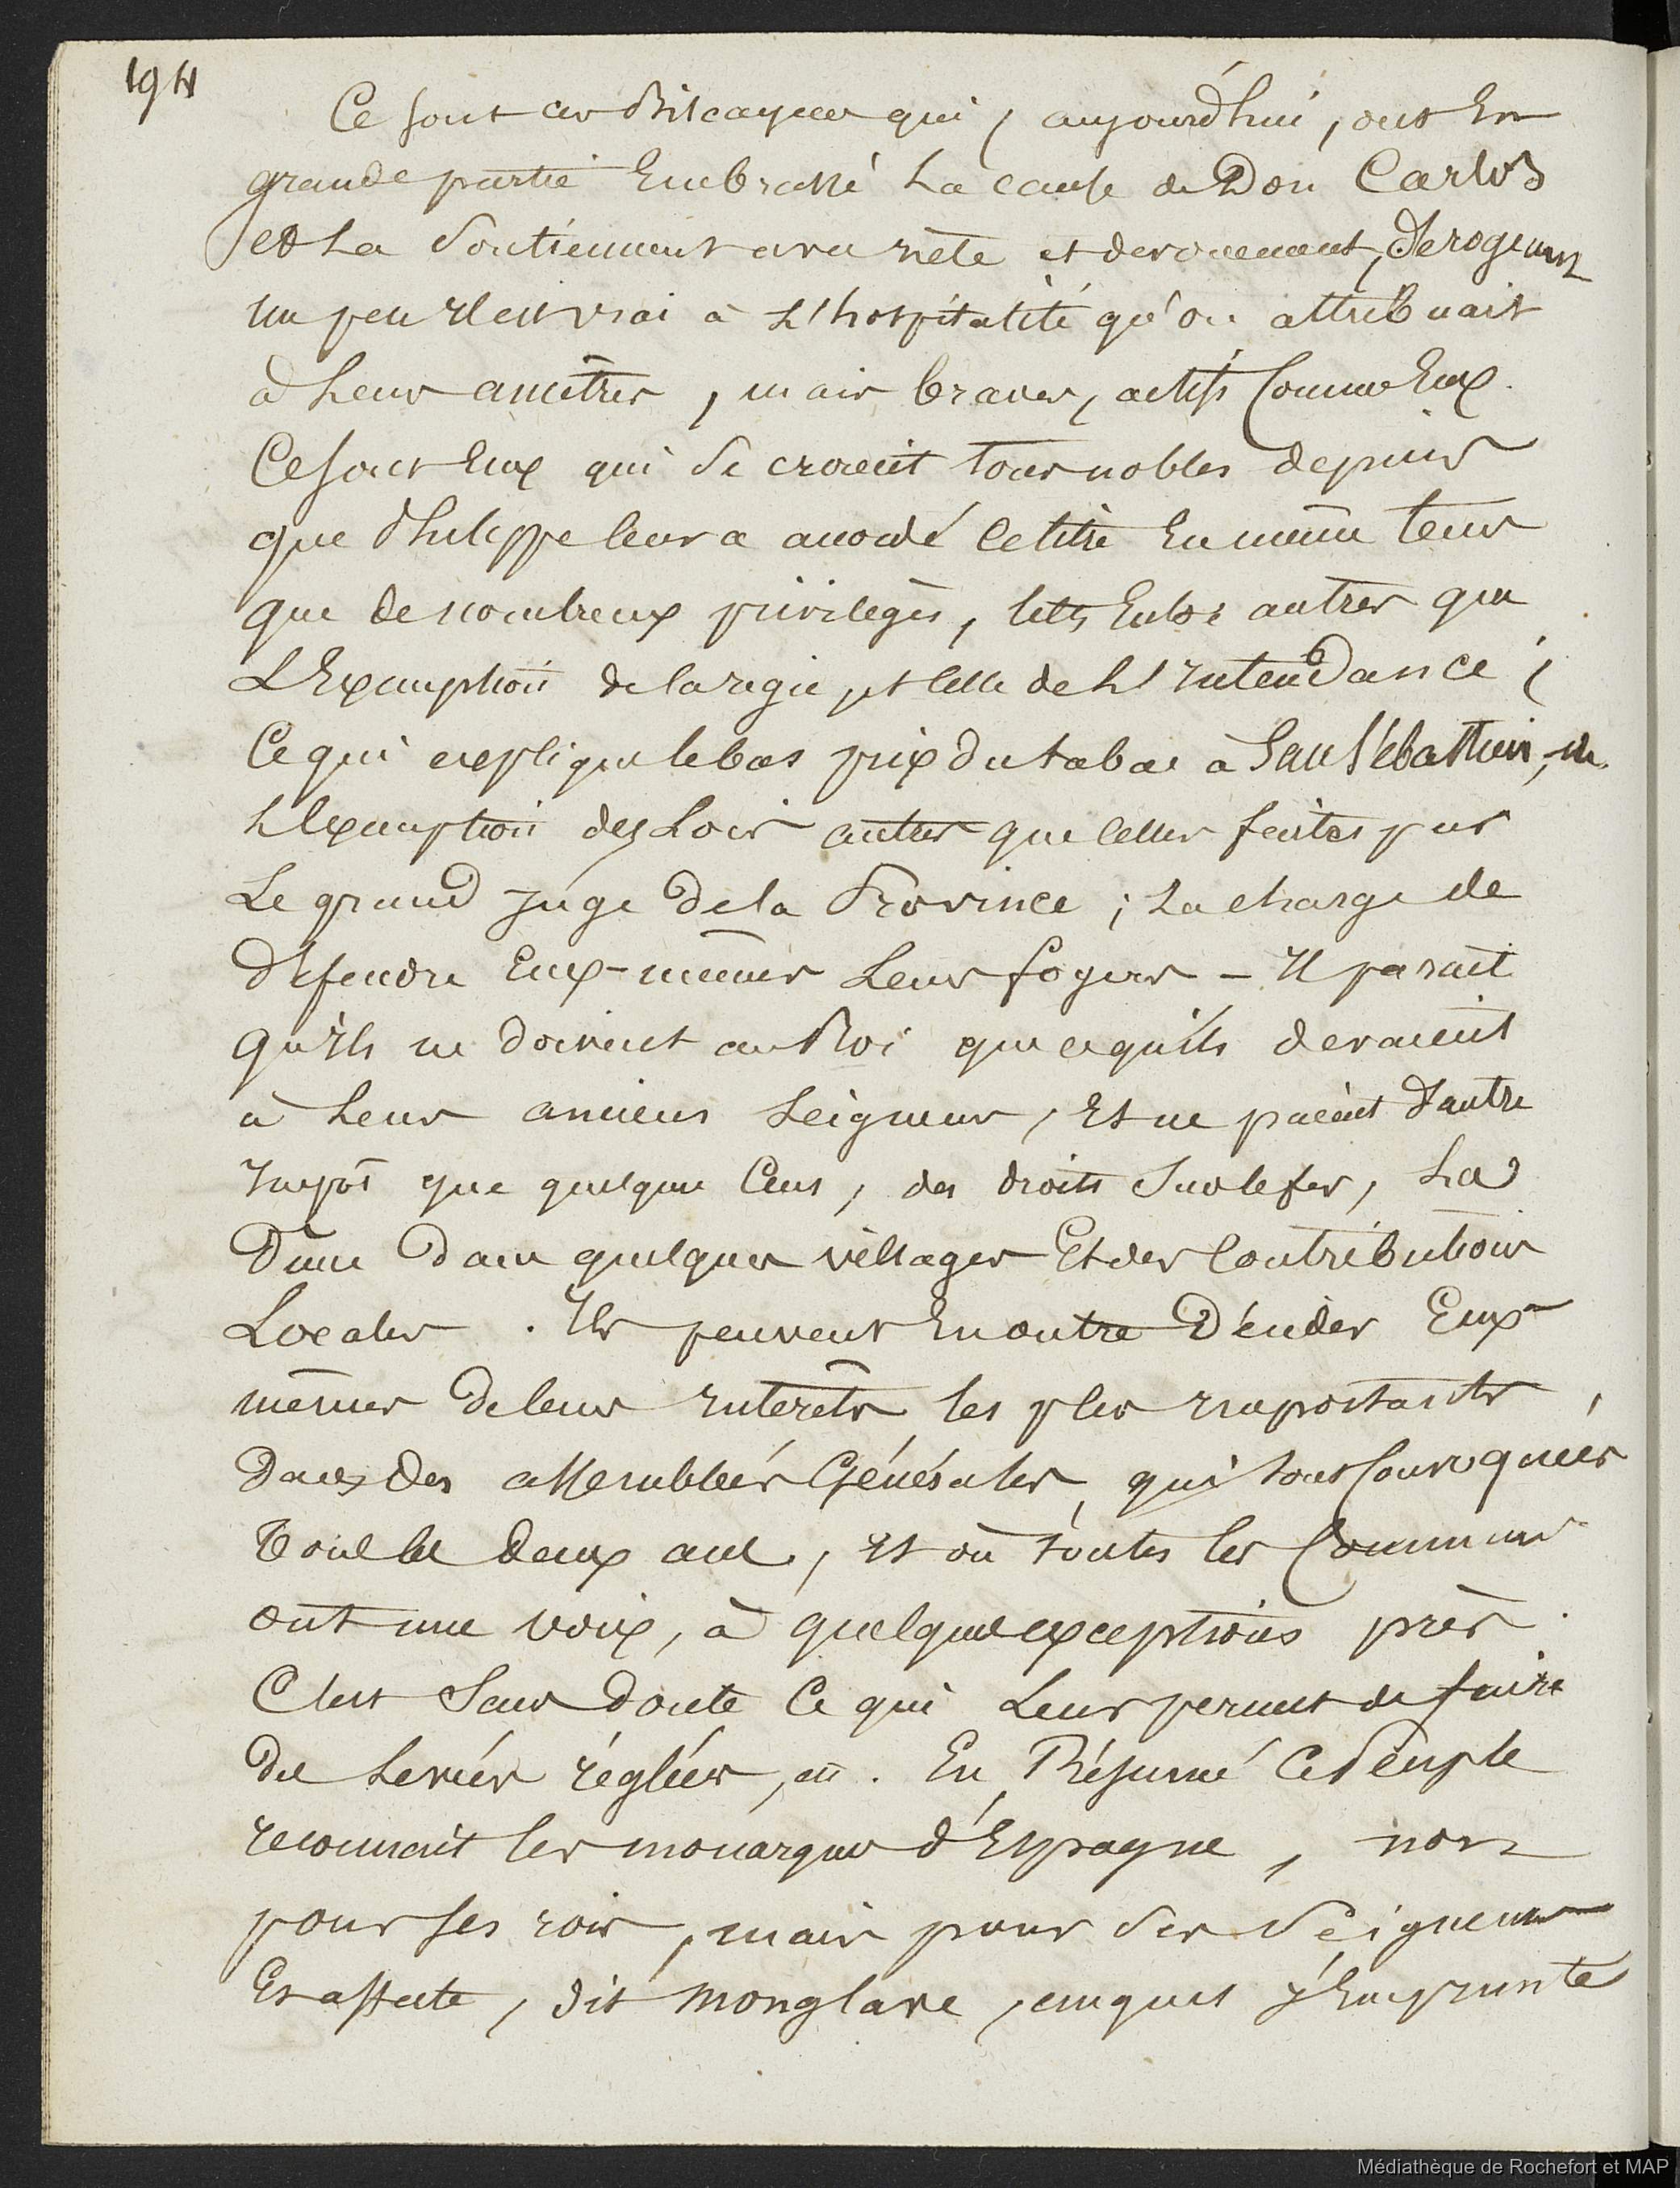 194
Ce sont ces Biscayens qui, aujourd'hui, ont En
grande partie Embrassé La cause de Don Carlos
et La Soutiennent avec zèle et devouement, Derogeant
un peu il est vrai à L'hospitalité qu'on attribuait
à Leurs ancêtres, mais braves, actifs Comme Eux.
Ce sont Eux qui Se croient tous nobles depuis
que Philippe leur a accordé Ce titre En même tems
que de nombreux privilèges, tels Entre autres que
L'Exemption de la régie, et Celle de L'Intendance;
Ce qui explique le bas prix du tabac à San Sébastien,
L'Exemption des Lois autres que Celles faites par
Le grand Juge De la Province; La charge de
défendre Eux-mêmes Leurs foyers – Il parait
qu'ils ne doivent au Roi que ce qu'ils devaient
à Leurs anciens Seigneurs, Et ne paient d'autre
Impôt que quelques Cens, des droits Sur le fer, La
Dime Dans quelques villages Et des Contributions
Locales. Ils peuvent En outre Décider Eux
mêmes De leurs Interêts les plus Importants,
Dans Des assemblées Générales, qui sont Convoquées
Tous les deux ans, Et où toutes les Communes
ont une voix, à quelques exceptions près.
C'est Sans Doute Ce qui Leur permet de faire
Des Levées réglées, . En Résumé Ce Peuple
reconnait les monarques d'Espagne, non
pour ses rois, mais pour Ses Seigneurs
Et affecte, dit Monglave, auquel J'Emprunte
Médiathèque de Rochefort et MAP